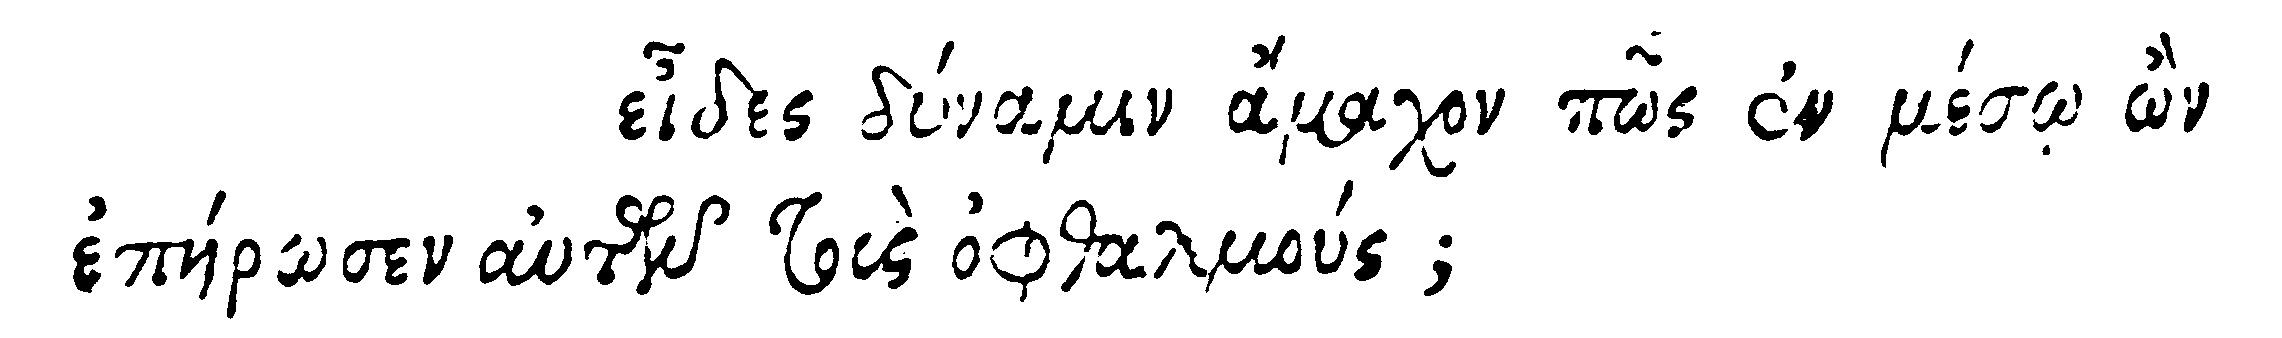 εἶδες δύναμιν ἄμαχον πῶς ἐν μέσῳ ὢν
ἐπήρωσεν αὐτῶν τοὺς ὀφθαλμούς ;